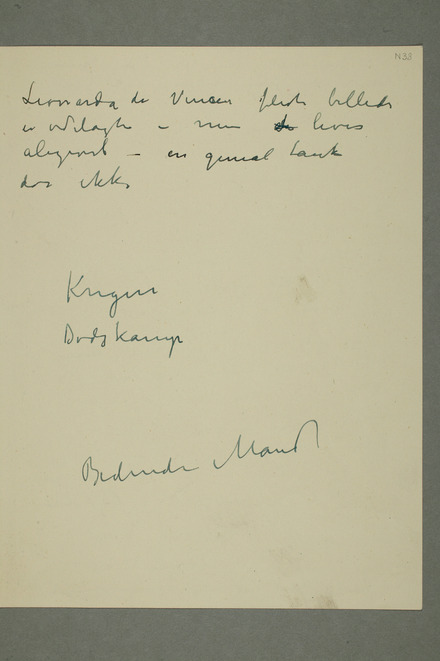 N 33
Leonarda da Vincis fleste billeder
er ødelagte – men de leves
alligevel – en genial tank
dør ikke
Krigen
Dødskamp
Bedende Mand